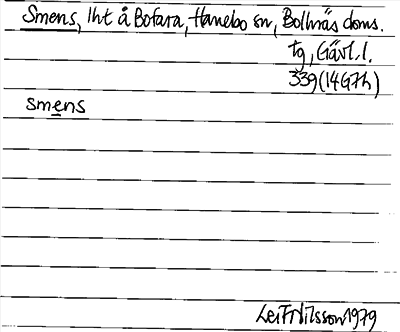 Smens, lht å Bofara, Hanebo sn, Bollnäs doms.
tg, Gävl. l.
339(14G7h)
smens
Leif Nilsson 1979